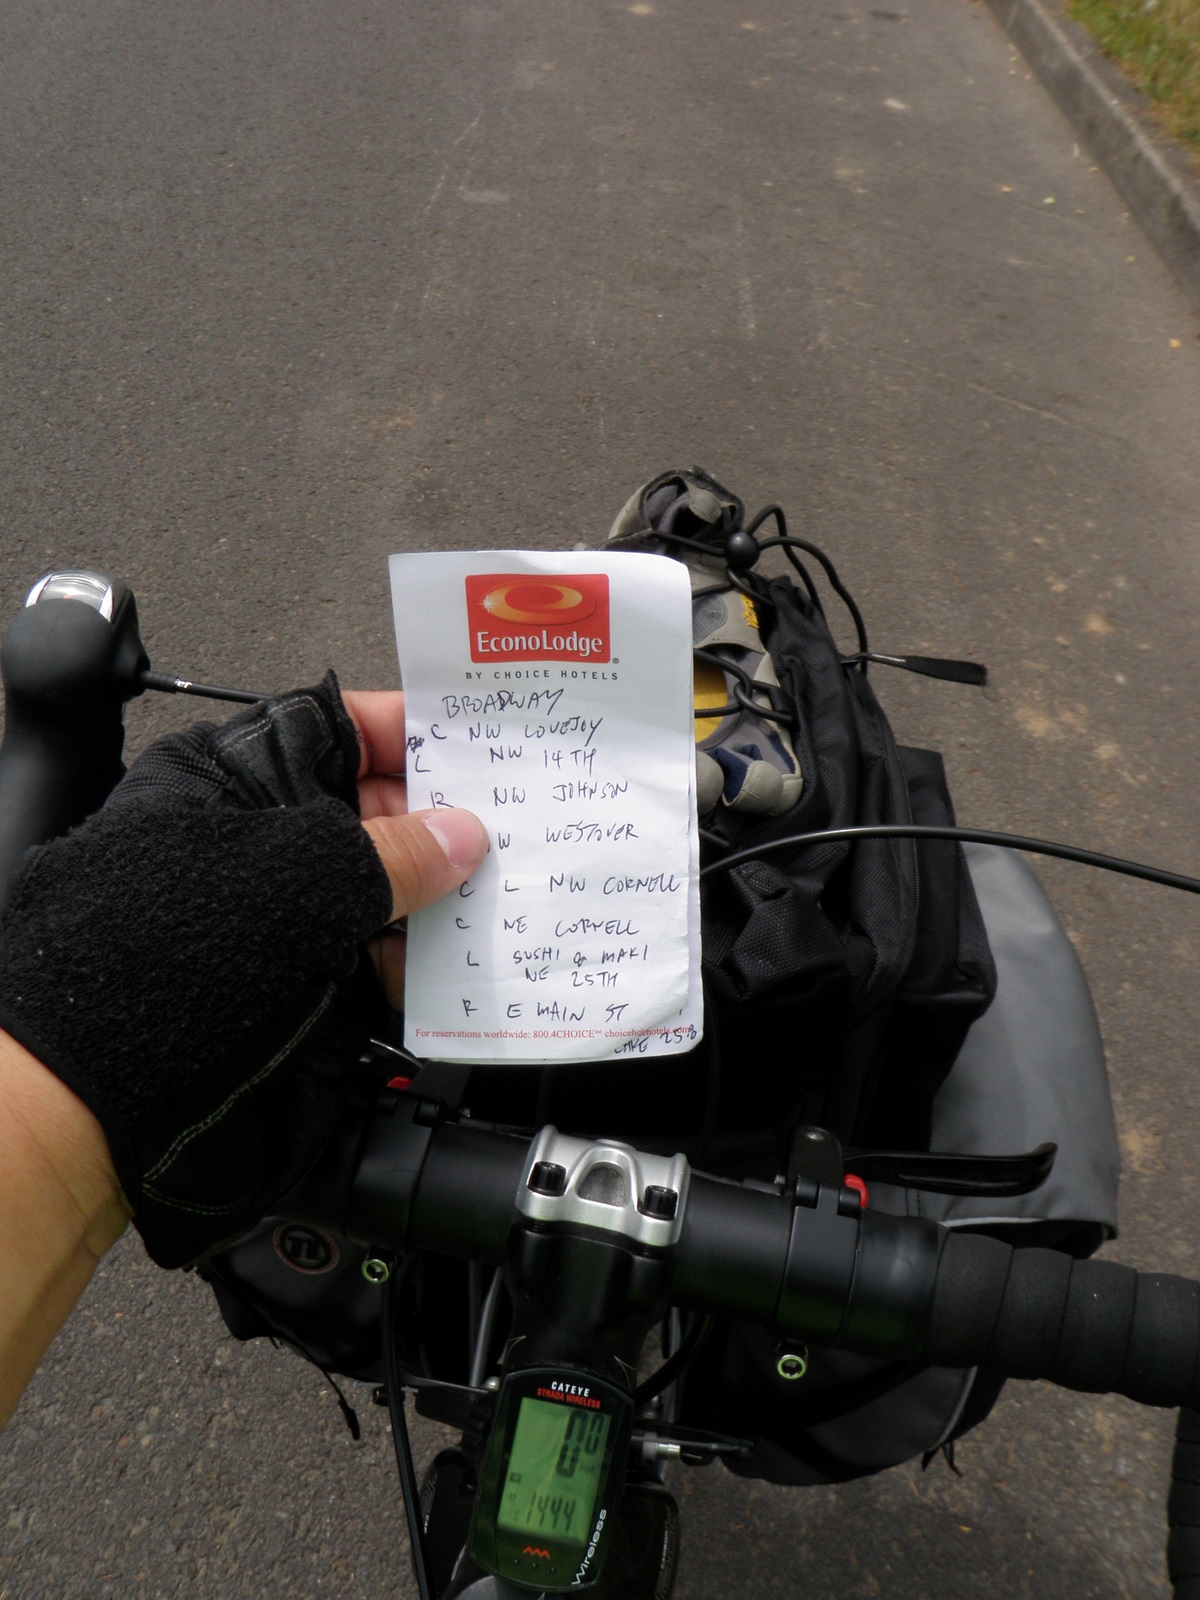 EconoLodge®
BY CHOICE HOTELS
BROADWAY
C NW LOVEJOY
L NW 14TH
R NW JOHNSON
W WESTOVER
C L NW CORNELL
C NE CORNELL
L SUSHI & MAKI
NE 25TH
R E MAIN ST
For reservations worldwide: 800.4CHOICE™ choicehotels.com
25%
CATEYE
STRADA WIRELESS
0.0
1444
Wireless